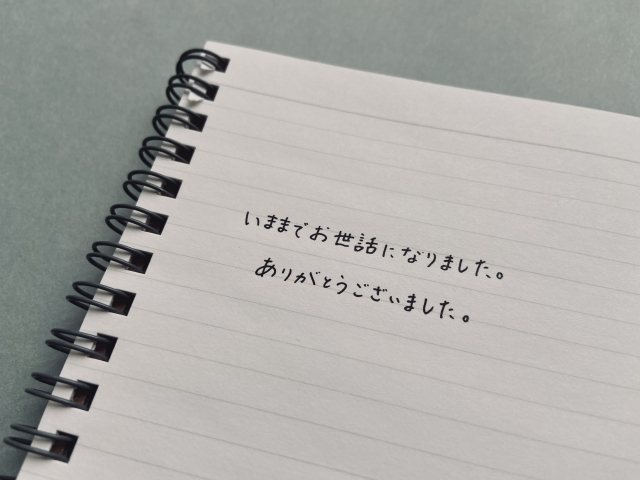 いままでお世話になりました。
ありがとうございました。